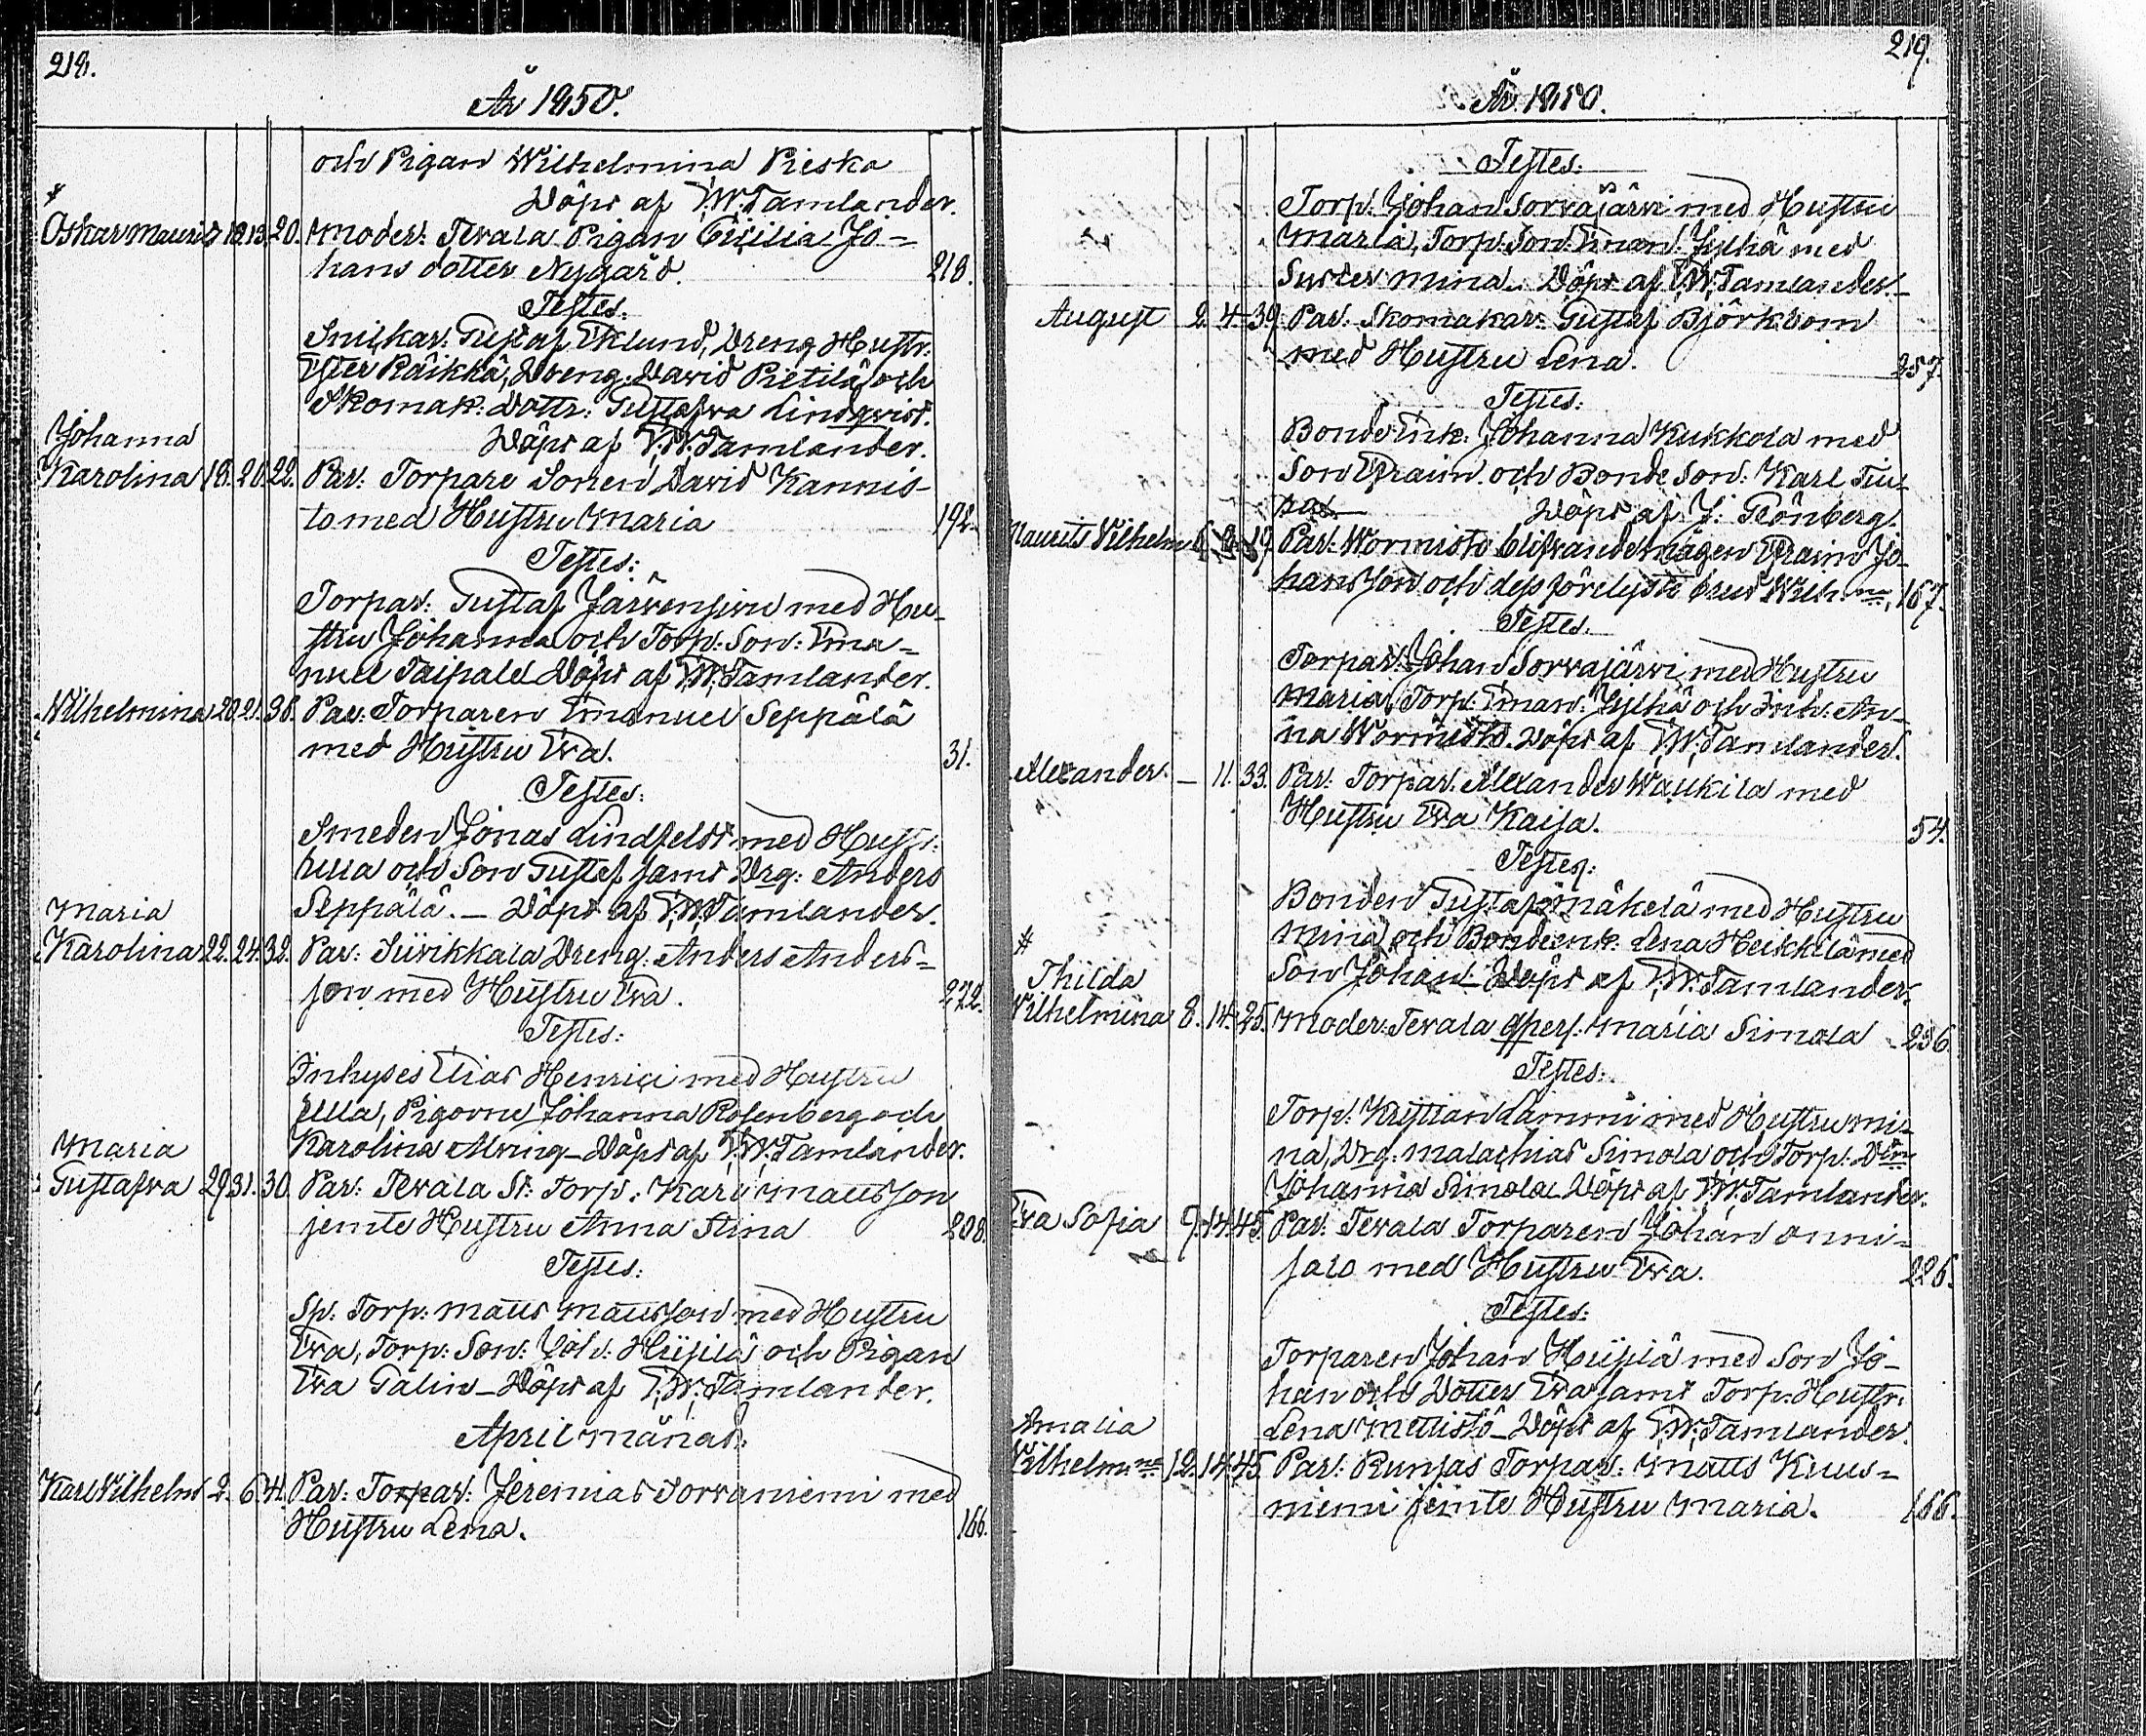 218.
År 1850.
och Pigan Wilhelmina Pieska
Döpt af T.W. Tamlander.
Oskar Mauritz 12. 13. 20. Moder: Tervala Pigan Cicilia Jo=
hans dotter Nygård. 218.
Testes:
Snickar: Gustaf Eklund, Dreng Hustr:
Ester Räikkä, Dreng: David Pietilä och
Skomak: Dottr: Gustafva Lindqvist.
Döpt af T.W. Tamlander.
Johanna
Karolina 18. 20. 22. Par: Torpare Sonen David Kannis-
to med Hustru Maria 192.
Testes:
Torpar: Gustaf Järvensivu med Hu-
stru Johanna och Torp: Son: Ema=
nuel Taipale Döpt af T.W. Tamlander.
Wilhelmina 20. 21. 36. Par: Torparen Emanuel Seppälä
med Hustru Eva. 31.
Testes:
Smeden Jonas Lindfelst med Hustr:
Ulla och Son Gustaf samt Drg: Anders
Seppälä. — Döpt af T.W. Tamlander.
Maria
Karolina 22. 24. 32. Par: Siivikkala Dreng: Anders Anders=
son med Hustru Eva. 272.
Testes:
Inhyses Elias Henrici med Hustru
Ulla, Pigorne Johanna Rosenberg och
Karolina Döpt af T.W. Tamlander.
Maria
Gustafva 29. 31. 30. Par: Tervala St: Torp: Karl Mattsson
jemte Hustru Anna Stina 208.
Testes:
Sp. Torp: Matts Mattsson med Hustru
Eva, Torp: Son: Joh: och Pigan
Eva Galin — Döpt af T.W. Tamlander.
April månad:
Karl Vilhelm 2. 6. 41. Par: Torpar: Jeremias Torvaniemi med
Hustru Lena. 166.
219.
År 1850.
Testes:
Torp: Johan Sorvajärvi med Hustru
Maria, Torp: Son: Eman: Jylhä med
Syster Mina. Döpt af T.W. Tamlander.
August 2. 4. 39. Par: Skomakar: Gustaf Björkbom
med Hustru Lena. 257.
Testes:
Bonde Enk: Johanna Kukkola med
Son Efraim och Bonde Son: Karl Tiu-
Döpt af J: Grönberg.
Maurits Vilhelm 6. 19. Par: Wormisto Efraim Jo-
hansson och dess förelyste brud Wilh:na, 167.
Testes.
Torpar: Johan Sorvajärvi med Hustru
Maria, Torp: Eman: Jylhä och Inh: An-
na Wormisto. Döpt af T.W. Tamlander.
Alexander. — 11. 33. Par: Torpar: Alexander Waukila med
Hustru Eva Kaisa. 54.
Testes:
Bonden Gustaf Mäkelä med Hustru
Mina och Bondeenk: Lena Heikkilä med
Son Johan — Döpt af T.W. Tamlander.
Thilda
Vilhelmina 8. 14. 25. Moder: Tervala qpers: Maria Simola 236.
Testes:
Torp: Kristian Lammi med Hustru Mi-
na, Drg: Malachias Simola och Torp:
Johanna Simola Döpt af T.W. Tamlander.
Eva Sofia 9. 14. 45. Par: Tervala Torparen Johan Onni-
salo med Hustru Eva. 226.
Testes:
Torparen Johan med Son Jo-
han och Dotter Eva samt Torp: Hustr:
Lena Mettistö — Döpt af T.W. Tamlander.
Amalia
Vilhelm:na 12. 14. 45. Par: Runsas Torpar: Matts Kuus=
niemi jemte Hustru Maria. 166.